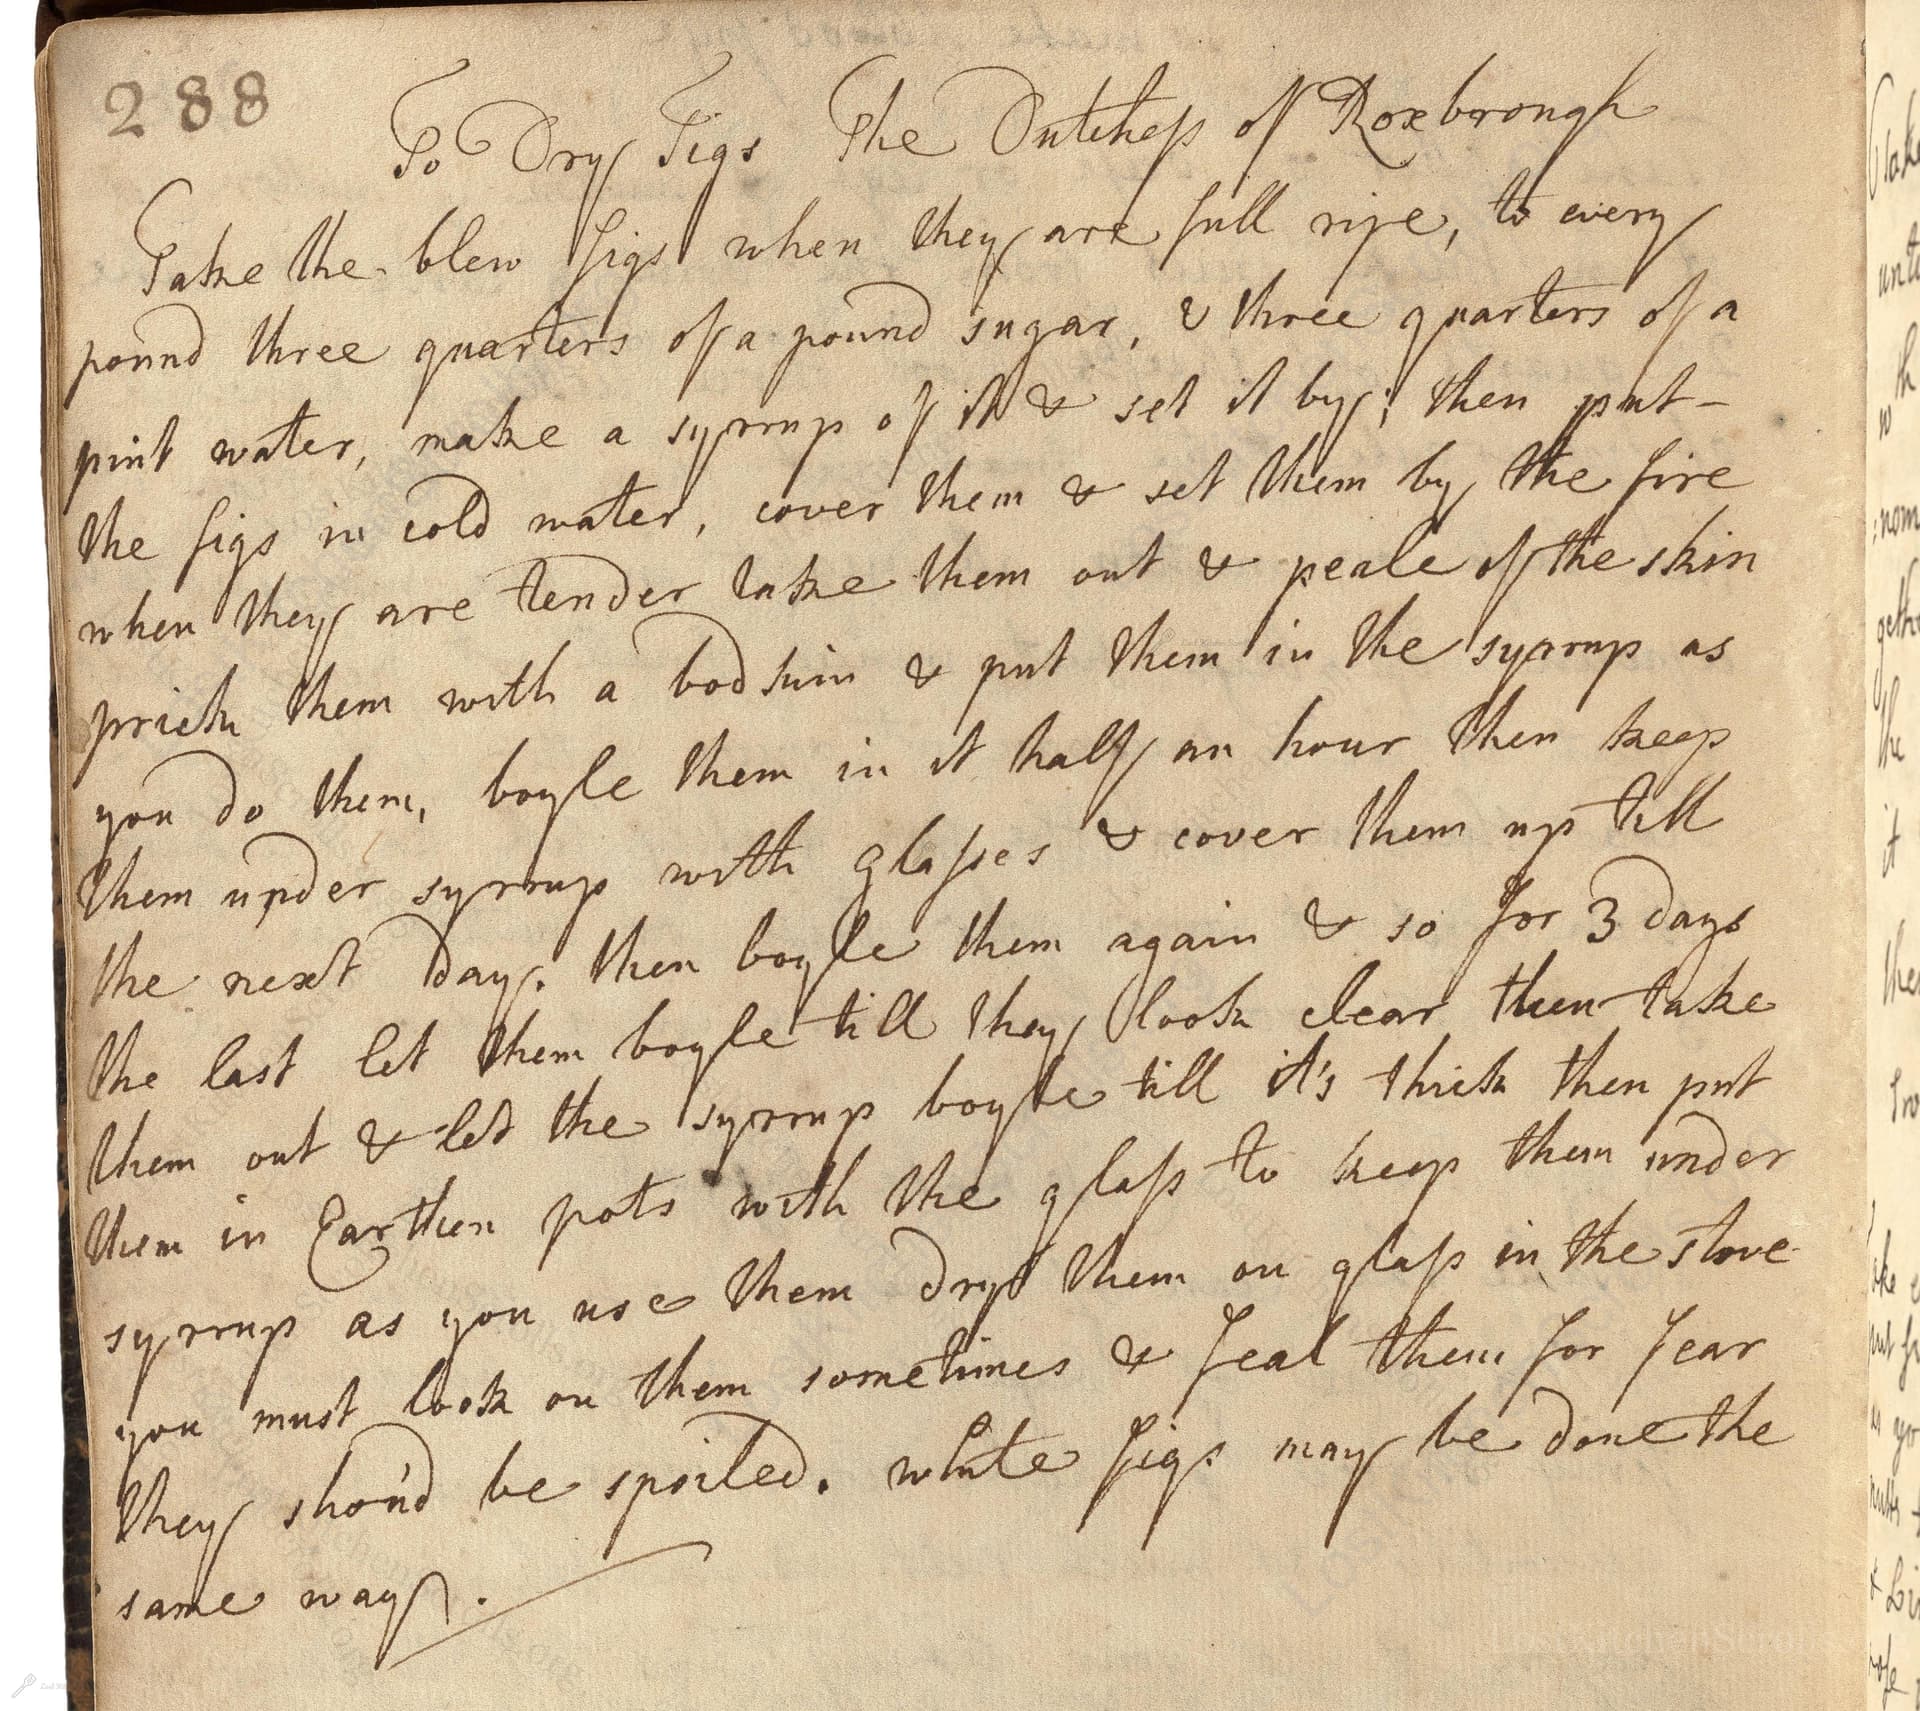 288
To Dry Figs The Dutchess of Roxbrough
Take the blew figs when they are full ripe, to every
pound three quarters of a pound sugar, & three quarters of a
pint water, make a syrrup of it & set it by; then put
the figs in cold water, cover them & set them by the fire
when they are tender take them out & peale of the skin
prick them with a bodkin & put them in the syrrup as
you do them, boyle them in it half an hour then keep
them under syrrup with glasses & cover them up till
the next day. then boyle them again & so for 3 days
the last let them boyle till they look clear then take
them out & let the syrrup boyle till it's thick then put
them in Earthen pots with the glass to keep them under
syrrup as you use them dry them on glass in the stove
you must look on them sometimes & feal them for fear
they shou'd be spoiled. white figs may be done the
same way.